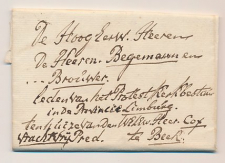 De Hoog Eerw. Heeren
De Heeren Begemann en
... Brouwer
leden van het Protest Kerkbestuur
in de Provincie Limburg
ten huize van den WelEw. Heer Cox
Pred. te Beek.